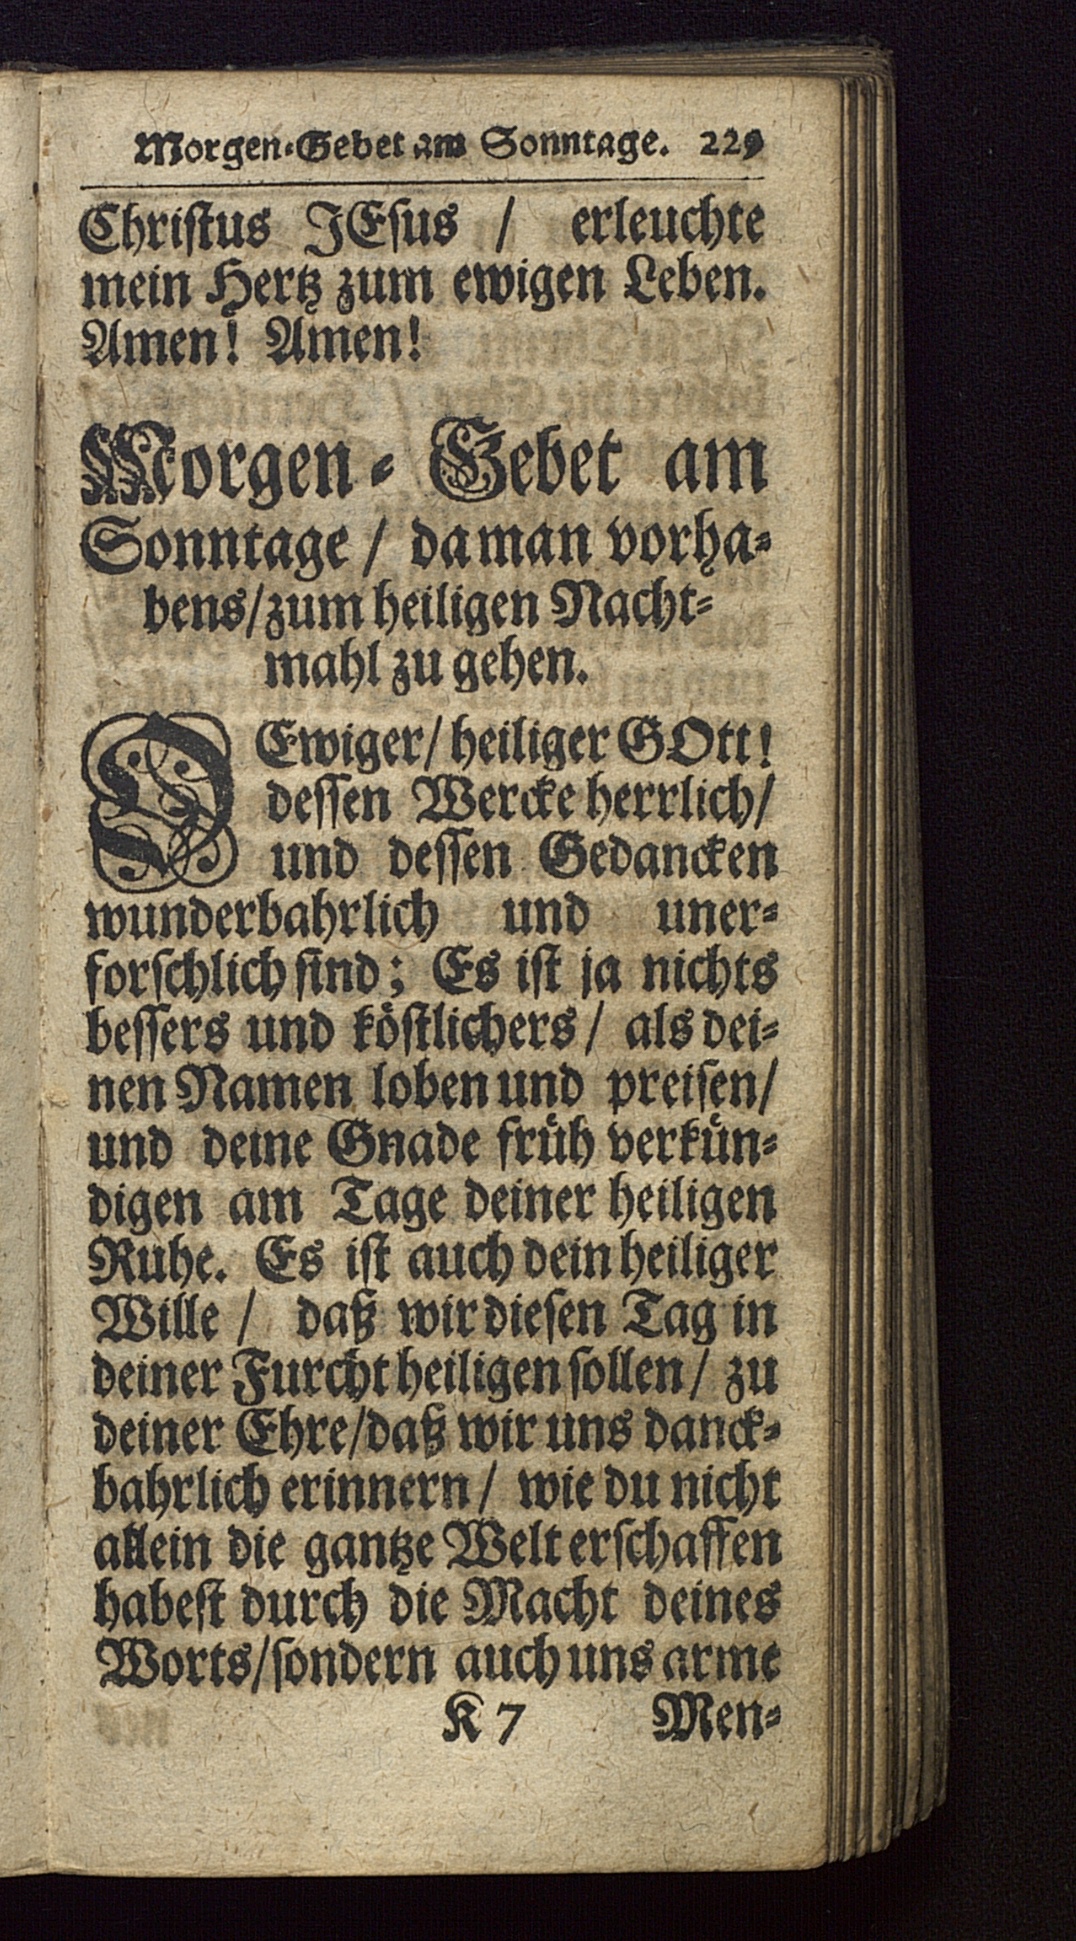 Morgen-Gebet am Sonntage. 229
Christus JEsus / erleuchte
mein Hertz zum ewigen Leben.
Amen! Amen!
Morgen-Gebet am
Sonntage / da man vorha-
bens/zum heiligen Nacht-
mahl zu gehen.
O Ewiger/ heiliger GOtt!
dessen Wercke herrlich/
und dessen Gedancken
wunderbahrlich und uner-
forschlich sind; Es ist ja nichts
bessers und köstlichers/ als dei-
nen Namen loben und preisen/
und deine Gnade früh verkün-
digen am Tage deiner heiligen
Ruhe. Es ist auch dein heiliger
Wille / daß wir diesen Tag in
deiner Furcht heiligen sollen/ zu
deiner Ehre/daß wir uns danck-
bahrlich erinnern/ wie du nicht
allein die gantze Welt erschaffen
habest durch die Macht deines
Worts/sondern auch uns arme
K 7 Men-